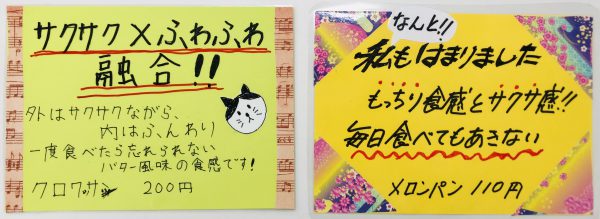 サクサク×ふわふわ
融合!!
外はサクサクながら、
内はふんわり
一度食べたら忘れられない
バター風味の食感です!
クロワッサン 200円
なんと!!
私もはまりました
もっちり食感とサクサ感!!
毎日食べてもあきない
メロンパン 110円